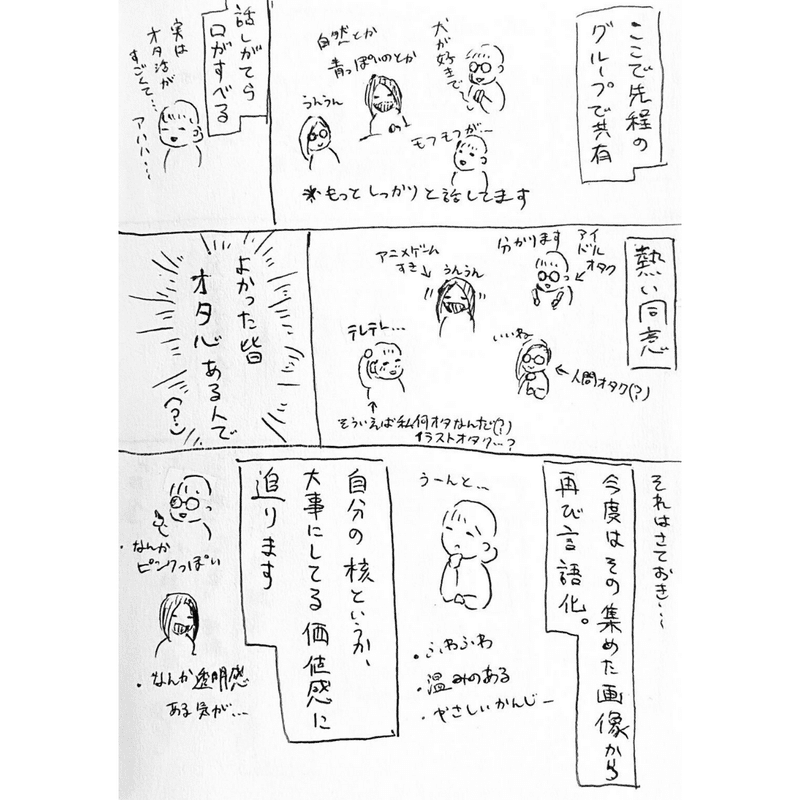 ここで先程の
グループで共有
犬が好きで
自然とか
青っぽいのとか
うんうん
もふもふが…
※もっとしっかりと話してます
話しがてら
口がすべる
実は
オタ活が
すごくて…
アハハ…
熱い同意
アイ
ドル
オタク
分かります
うんうん
アニメゲーム
すき
いいね
←人間オタク(?)
テレテレ…
そういえば私何オタなんだ(?)
イラストオタク…?
よかった皆
オタ心ある人で
(?)
それはさておき…
今度はその集めた画像から
再び言語化。
うーんと…
・ふわふわ
・温みのある
・やさしいかんじー
自分の核というか、
大事にしてる価値感に
迫ります
・なんか
ピンクっぽい
・なんか透明感
ある気が…